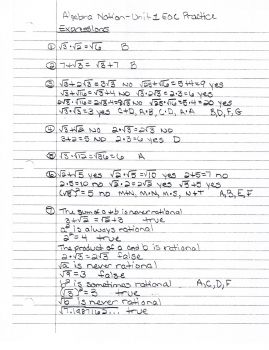 Algebra Nation-Unit 1 EOC Practice
Expressions
① √3·√2=√6 B
② 7+√3 = √3+7 B
③ √3+2√3=3√3 NO √25+√16=5+4=9 yes
√3+√16=√3+4 NO √3·2√3=2·3=6 yes
2√3·√16=2√3·4=8√3 NO √25·√16=5·4=20 yes
√3·√3=3 yes C+D, A·B, C·D, A·A B,D,F,G
④ √3+√2 NO 2·√3=2√3 NO
3+2=5 NO 2·3=6 yes D
⑤ √3·√12=√36=6 A
⑥ √2+√5 yes √2·√5=√10 yes 2+5=7 no
2·5=10 no √2·2=2√2 yes √5+5 yes
(√5)²=5 no M+N, M·N, M·S, N+T A,B,E,F
⑦ The sum of a+b is never rational
3+√2 = √2+3 true
a² is always rational
2²=4 true
The product of a and b is rational
2·√3=2√3 false
√a is never rational
√9=3 false
b² is sometimes rational A,C,D,F
(√3)²=3 true
√b is never rational
true